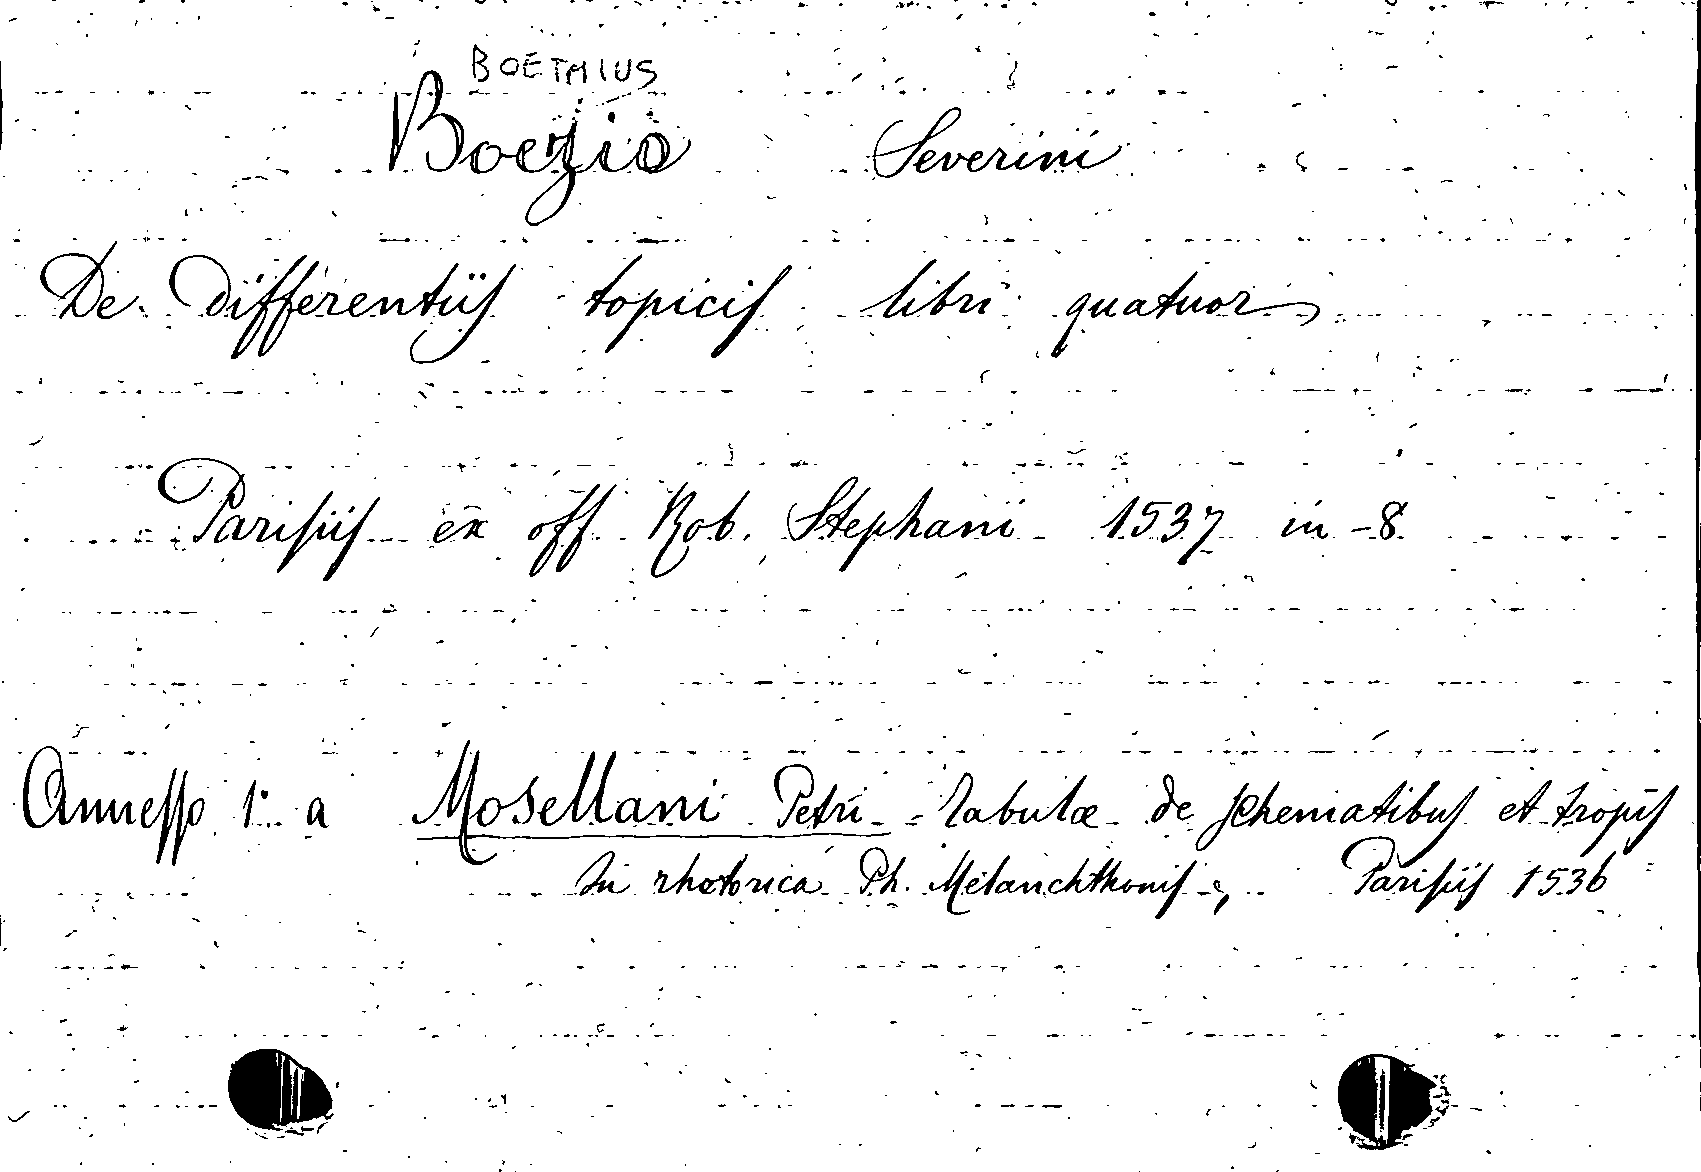 BOETHIUS
Boezio Severini
De Differentiis topicis libri quatuor
Parisiis ex off Rob. Stephani 1537 in-8
Annesso 1° a Mosellani Petri - Tabulæ de schematibus et tropis
In rhetorica Ph. Melanchthonis, Parisiis 1536